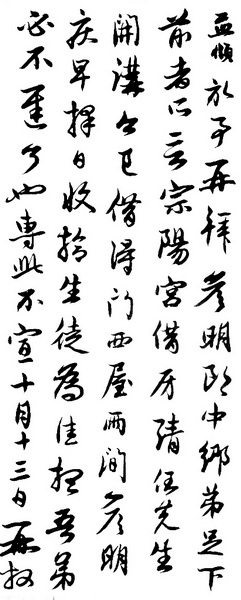 孟頫頓首再拜彦明郎中鄉弟足下
前者所言宗陽宮借房請任先生
開講今已借得門西屋兩間彦明
疾早擇日收拾生徒為佳想吾弟
必不遲了也專此不宣十月十三日再拜